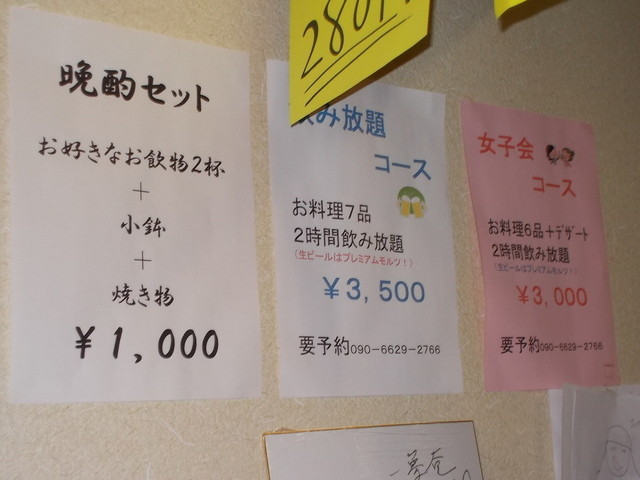 晩酌セット
お好きなお飲物2杯
+
小鉢
+
焼き物
￥1,000
280円
飲み放題
コース
お料理7品
2時間飲み放題
(生ビールはプレミアムモルツ!)
￥3,500
要予約090-6629-2766
女子会
コース
お料理6品+デザート
2時間飲み放題
(生ビールはプレミアムモルツ!)
￥3,000
要予約090-6629-2766